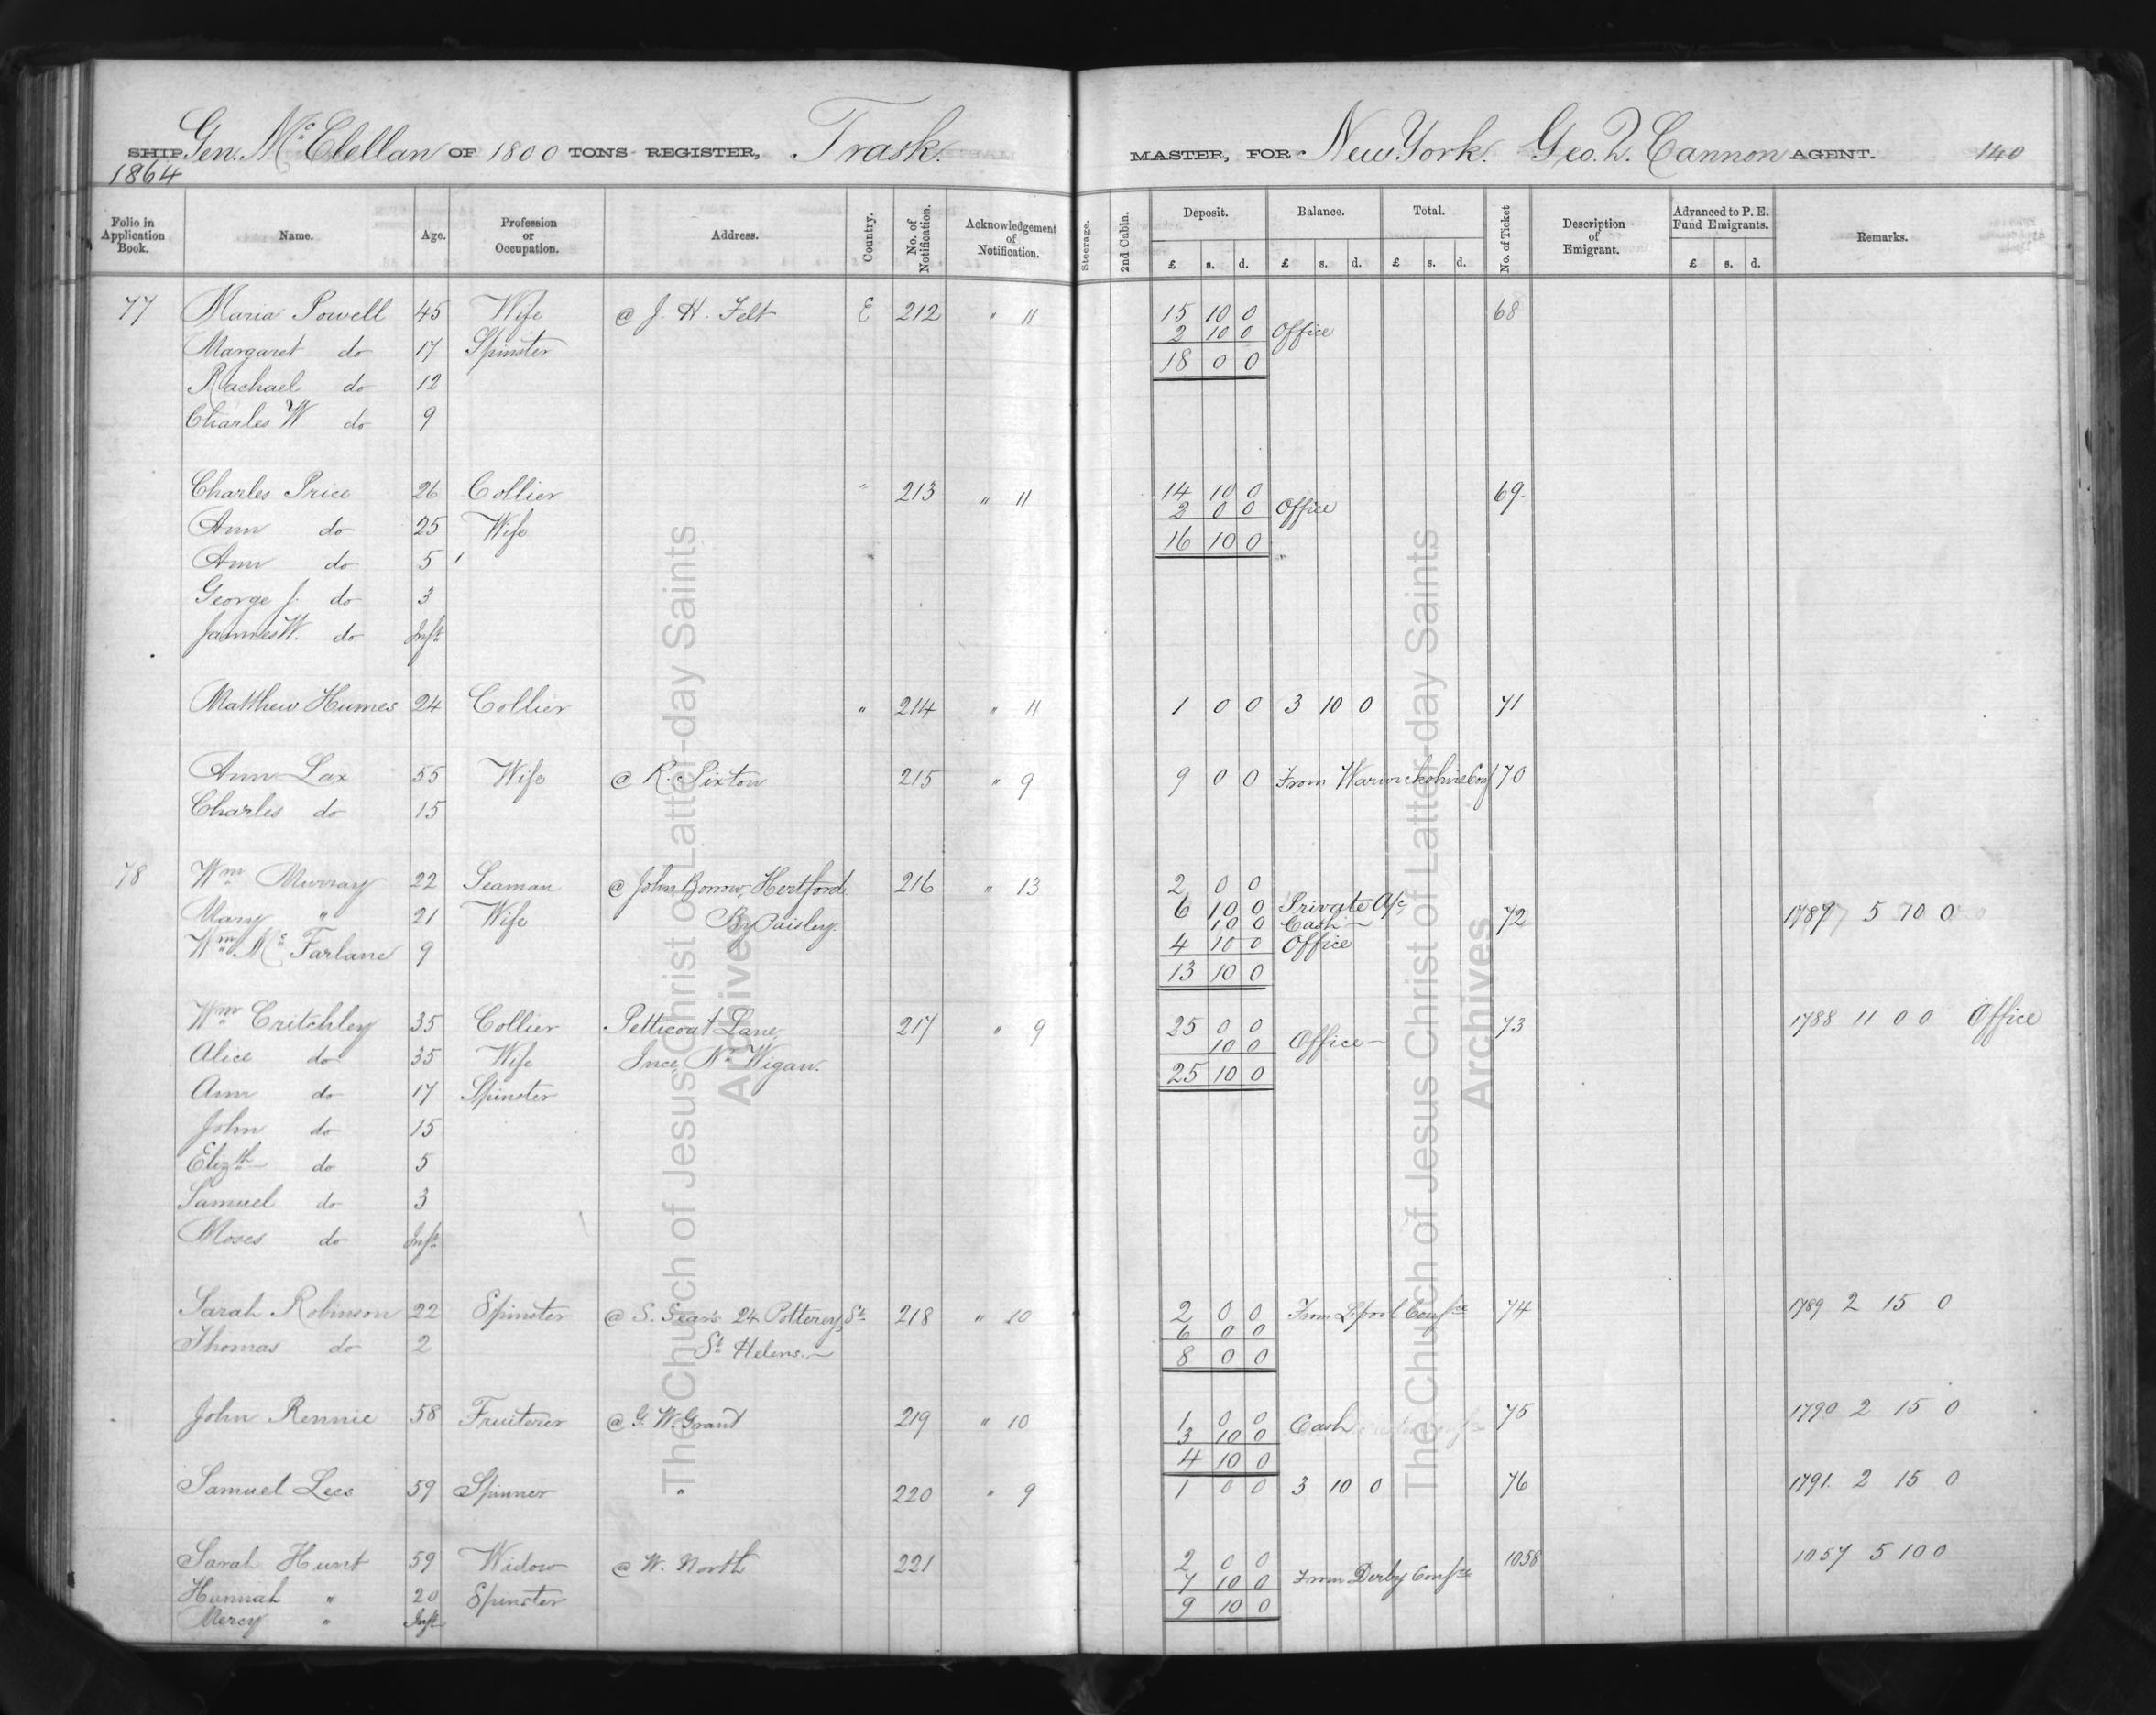 SHIP Gen. Mc Clellan OF 1800 TONS REGISTER, Trask. MASTER, FOR New York. Geo. Q. Cannon AGENT. 140
1864
Folio in Application Book. Name. Age. Profession or Occupation. Address. Country. No. of Notification. Acknowledgement of Notification. Steerage. 2nd Cabin. Deposit. £ s. d. Balance. £ s. d. Total. £ s. d. No. of Ticket Description of Emigrant. Advanced to P. E. Fund Emigrants. £ s. d. Remarks.
77 Maria Powell 45 Wife @ J. H. Felt E 212 " 11 15 10 0 68
2 10 0 Office
Margaret do 17 Spinster 18 0 0
Rachael do 12
Charles W do 9
Charles Price 26 Collier " 213 " 11 14 10 0 69.
2 0 0 Office
Ann do 25 Wife 16 10 0
Ann do 5
George J. do 3
James W. do Inft
Matthew Humes 24 Collier " 214 " 11 1 0 0 3 10 0 71
Ann Lax 55 Wife @ R. Pixton 215 " 9 9 0 0 From Warwickshire Conf 70
Charles do 15
78 Wm Murray 22 Seaman @ John Borrow, Hertford 216 " 13 2 0 0
Mary " 21 Wife By Paisley. 6 10 0 Private A/c 72 1787 5 10 0
10 0 Cash
Wm Mc Farlane 9 4 10 0 Office
13 10 0
Wm Critchley 35 Collier Petticoat Lane 217 " 9 25 0 0 73 1788 11 0 0 Office
10 0 Office
Alice do 35 Wife Ince, Nr Wigan. 25 10 0
Ann do 17 Spinster
John do 15
Elizth do 5
Samuel do 3
Moses do Inft
Sarah Robinson 22 Spinster @ S. Sears 24 Potterey St 218 " 10 2 0 0 From Lpool Confce 74 1789 2 15 0
6 0 0
Thomas do 2 St Helens. 8 0 0
John Rennie 58 Fruiterer @ G. W. Grant 219 " 10 1 0 0 Cash 75 1790 2 15 0
3 10 0
4 10 0
Samuel Lees 59 Spinner " 220 " 9 1 0 0 3 10 0 76 1791. 2 15 0
Sarah Hunt 59 Widow @ W. North 221 2 0 0 1058 1057 5 10 0
7 10 0 From Derby Confce
Hannah " 20 Spinster 9 10 0
Mercy " Inft
The Church of Jesus Christ of Latter-day Saints
Archives
The Church of Jesus Christ of Latter-day Saints
Archives